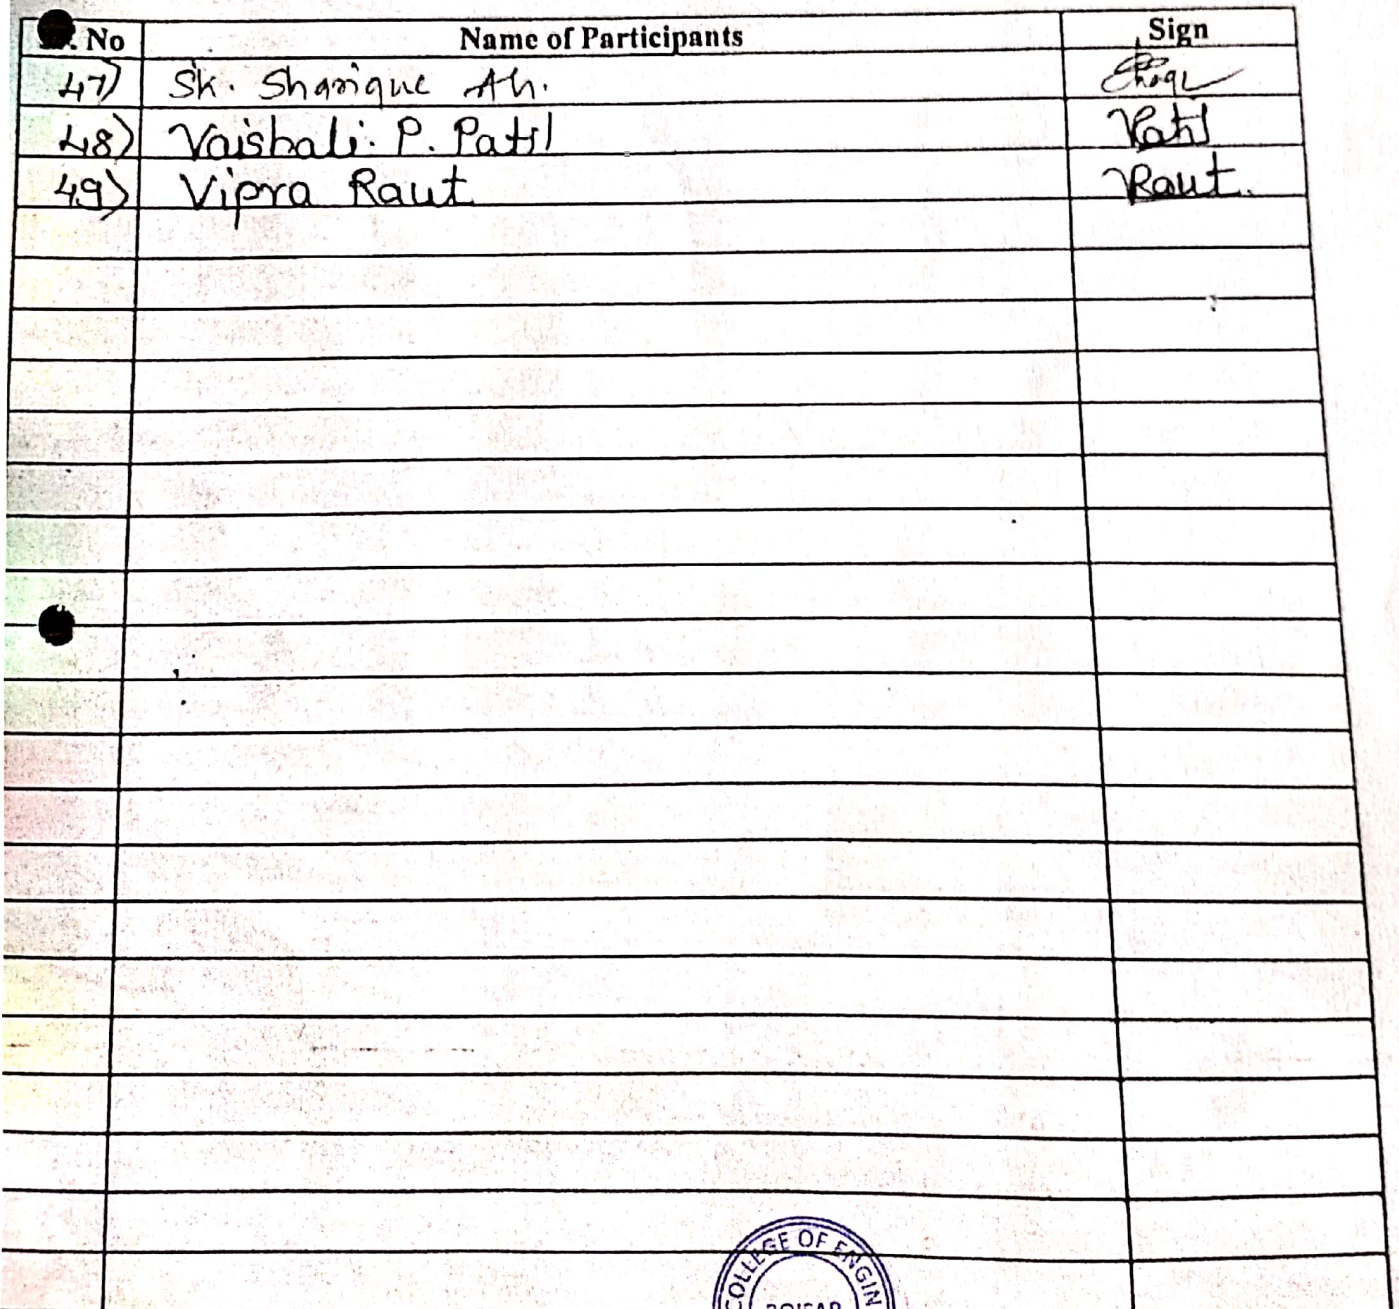 . No Name of Participants Sign
47) Sk. Sharique Ah.
48) Vaishali. P. Patil Patil
49) Vipra Raut Raut.
COLLEGE OF ENGIN
BOISAR